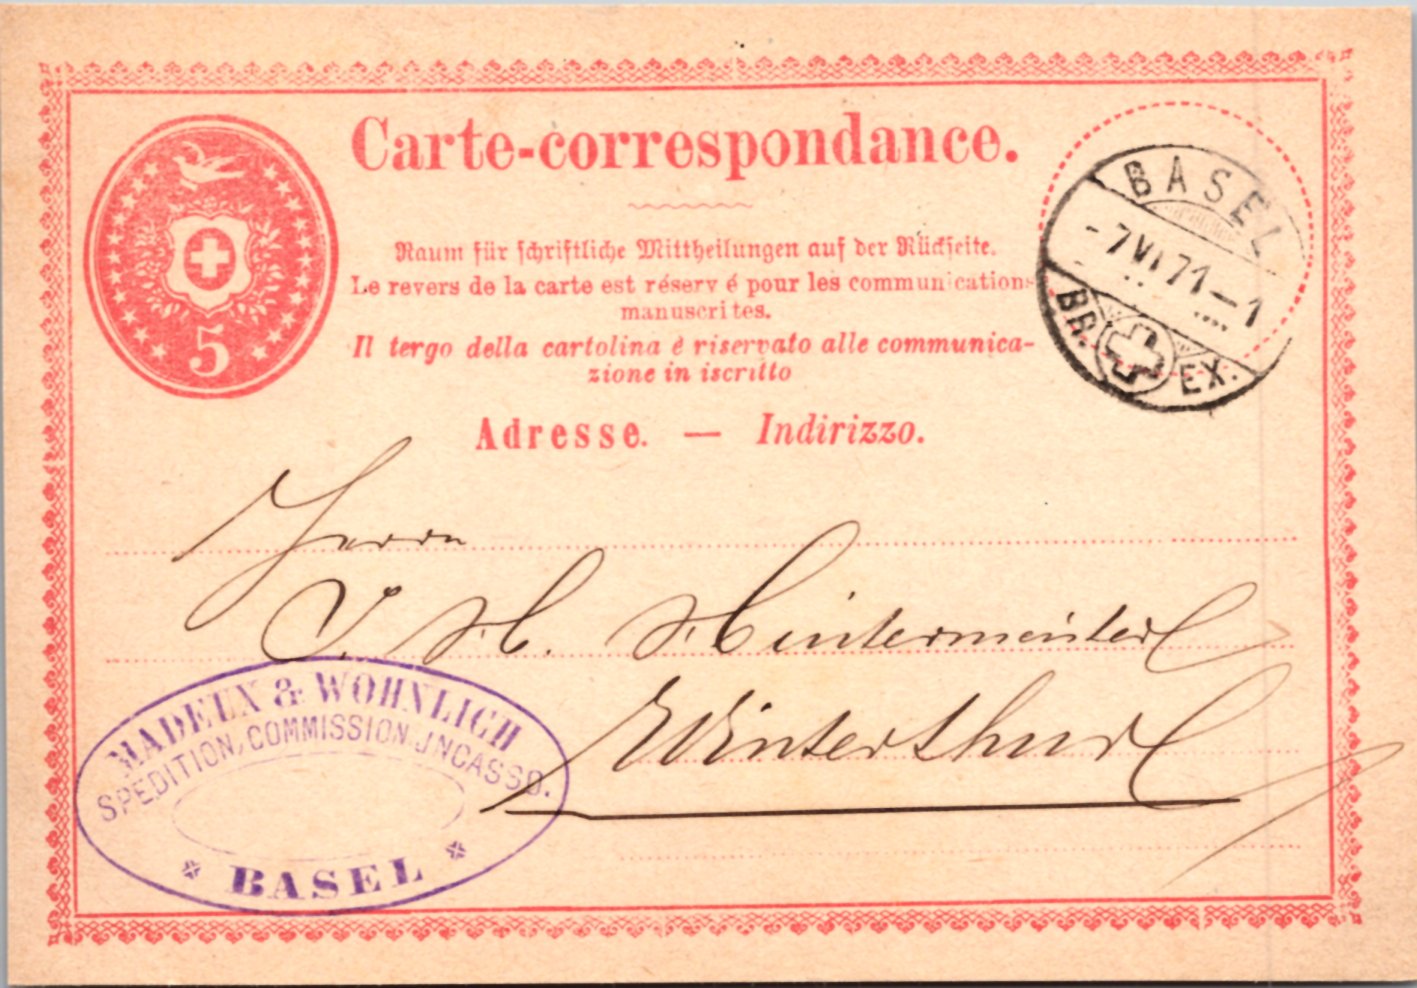 Carte-correspondance.
5
Raum für schriftliche Mittheilungen auf der Rückseite.
Le revers de la carte est réservé pour les communications
manuscrites.
Il tergo della cartolina è riservato alle communica-
zione in iscritto
Adresse. — Indirizzo.
BASEL
-7 VI 71-1
BR. EX.
Herrn
J. H. Hintermeister
Winterthur
MADEUX & WOHNLICH
SPEDITION, COMMISSION JNCASSO.
BASEL